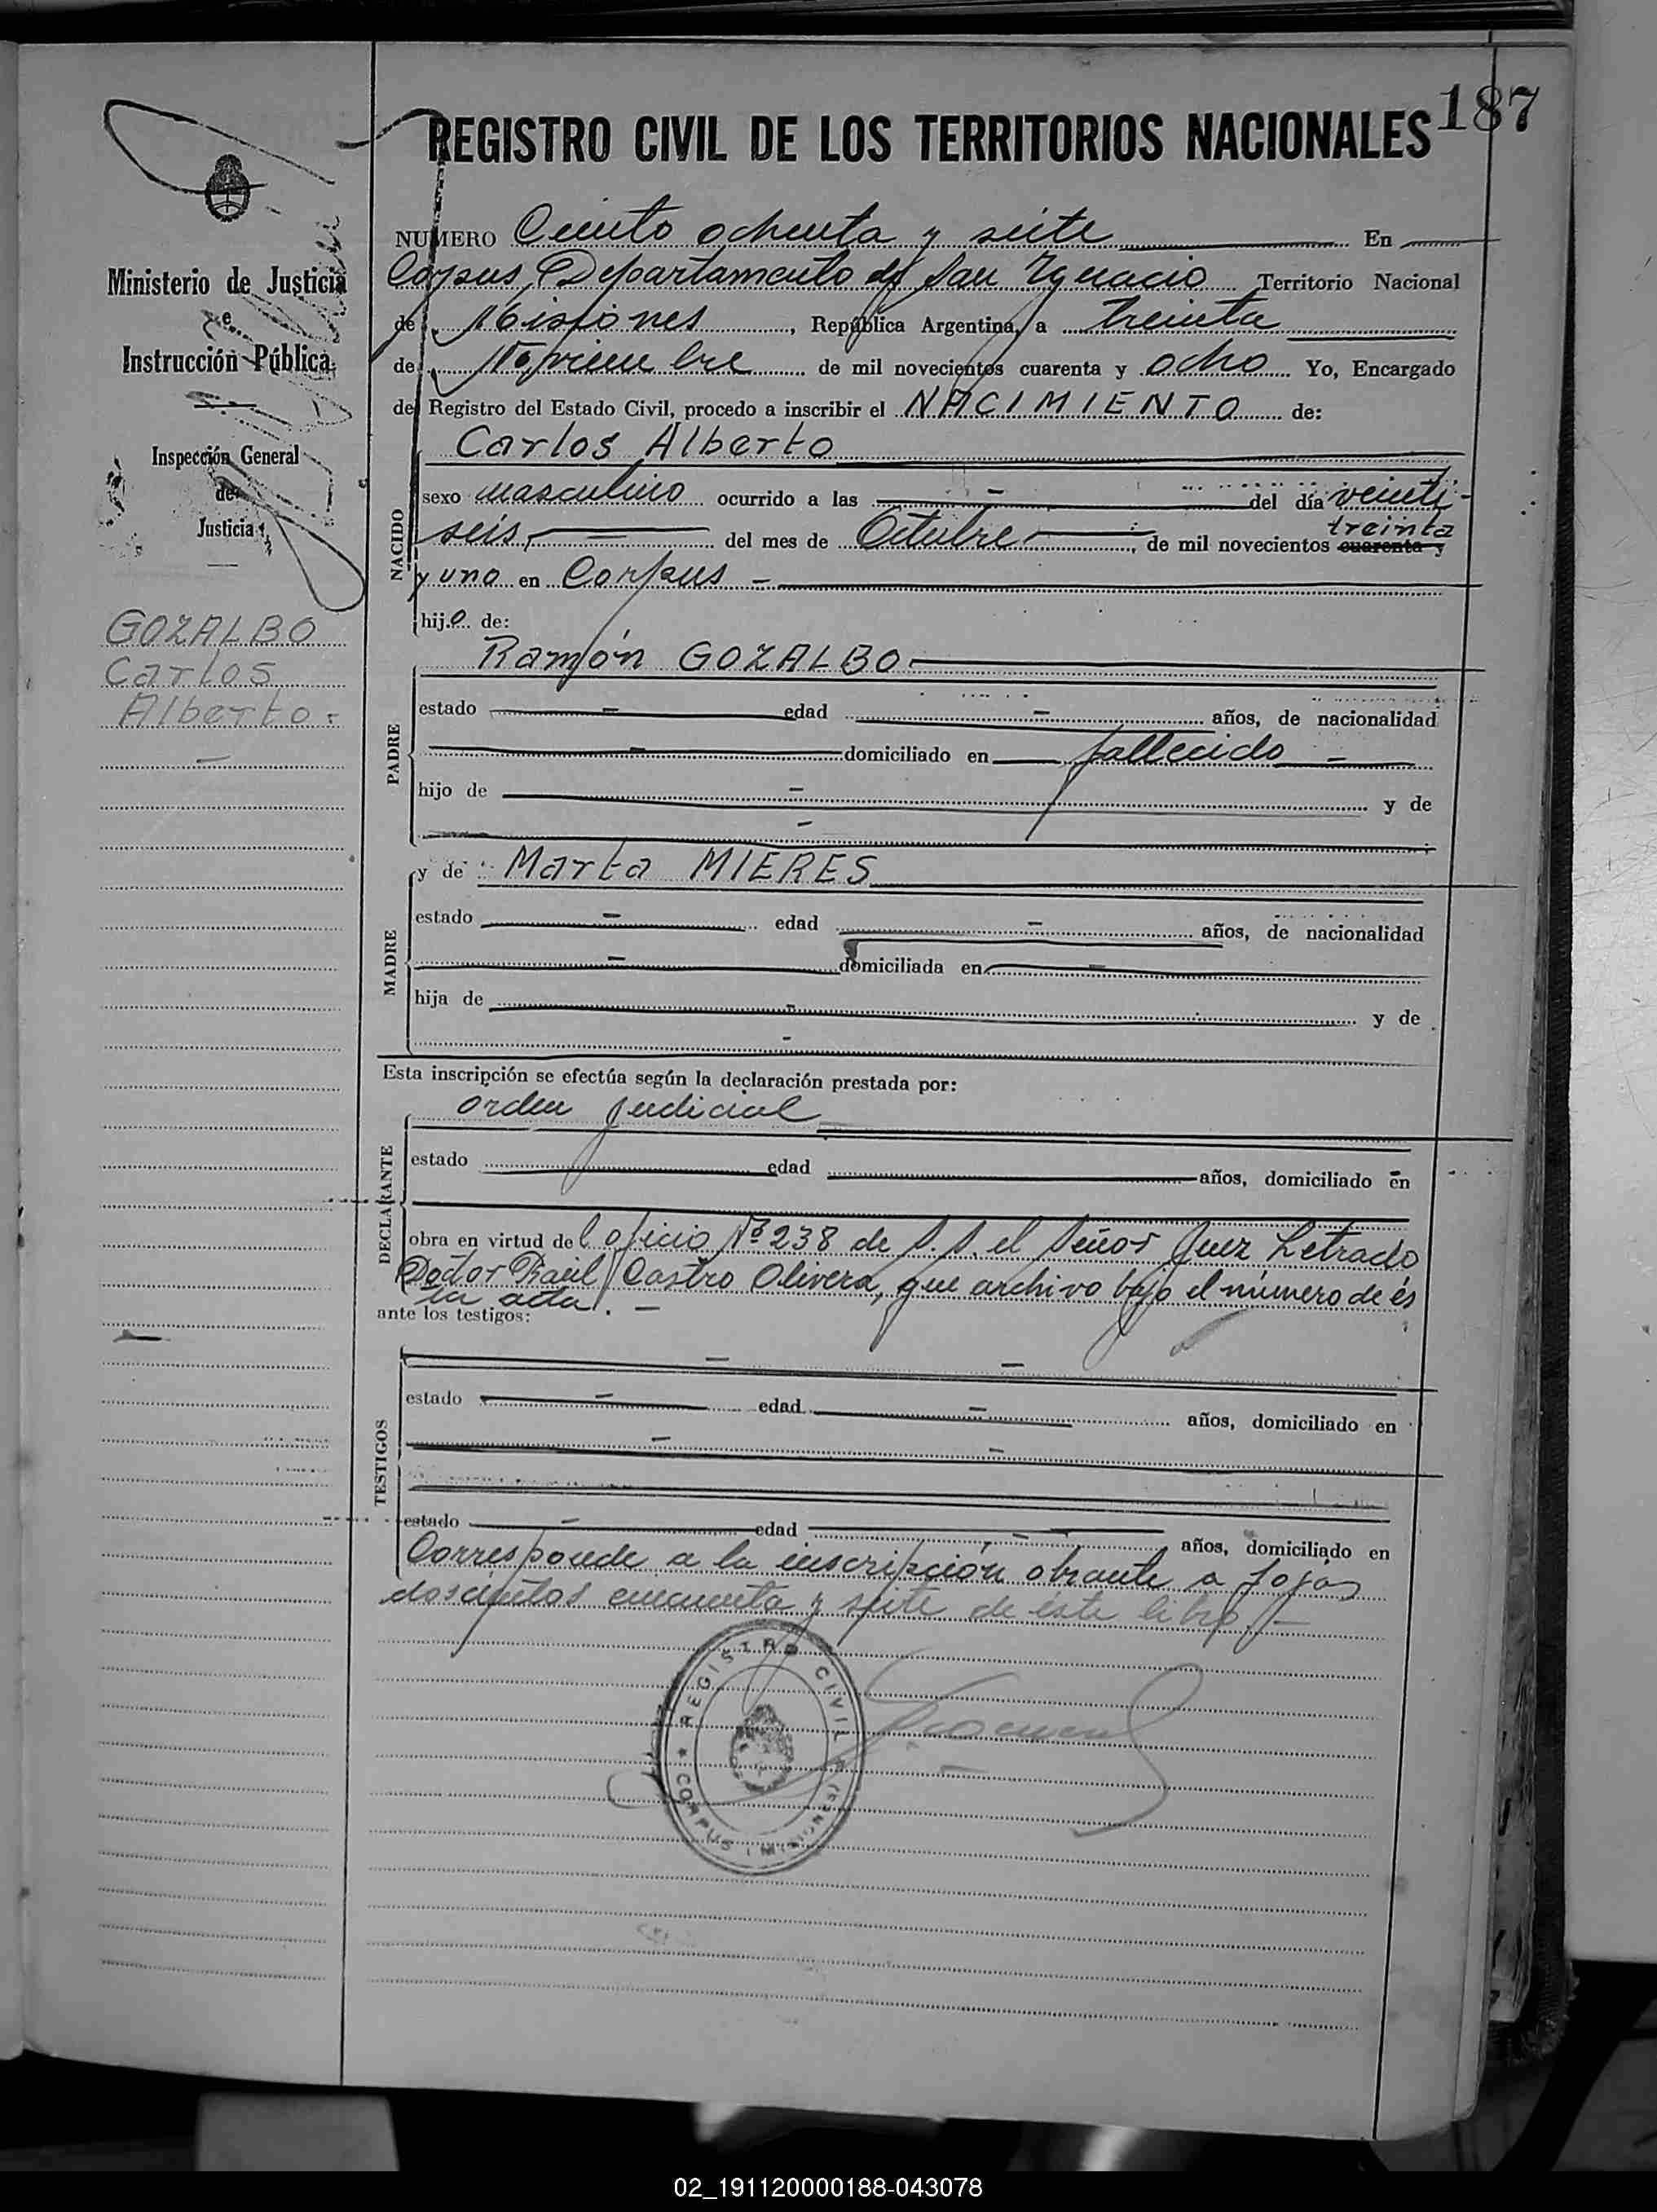 187
REGISTRO CIVIL DE LOS TERRITORIOS NACIONALES
NUMERO Ciento ochenta y siete En
Corpus, Departamento de San Ygnacio Territorio Nacional
de Misiones, República Argentina, a treinta
de Noviembre de mil novecientos cuarenta y ocho Yo, Encargado
del Registro del Estado Civil, procedo a inscribir el NACIMIENTO de:
Carlos Alberto
sexo masculino ocurrido a las - del día veinti-
seis, - del mes de Octubre, de mil novecientos cuarenta y treinta
y uno en Corpus -
hijo de:
NACIDO
Ramón GOZALBO
estado - edad - años, de nacionalidad
- domiciliado en fallecido -
hijo de - y de
-
PADRE
y de Marta MIERES
estado - edad - años, de nacionalidad
- domiciliada en -
hija de - y de
-
MADRE
Esta inscripción se efectúa según la declaración prestada por:
orden judicial
estado edad años, domiciliado en
obra en virtud del oficio Nº 238 de S.S. el Señor Juez Letrado
Doctor Raul Castro Olivera, que archivo bajo el número de és
ta acta. -
DECLARANTE
ante los testigos:
- -
estado - edad - años, domiciliado en
- -
estado - edad - años, domiciliado en
TESTIGOS
Corresponde a la inscripción obrante a fojas
doscientos cincuenta y siete de éste libro. -
REGISTRO CIVIL
★ CORPUS (MISIONES)
Ministerio de Justicia
e
Instrucción Pública
Inspección General
de
Justicia
GOZALBO
Carlos
Alberto.-
-
02_191120000188-043078